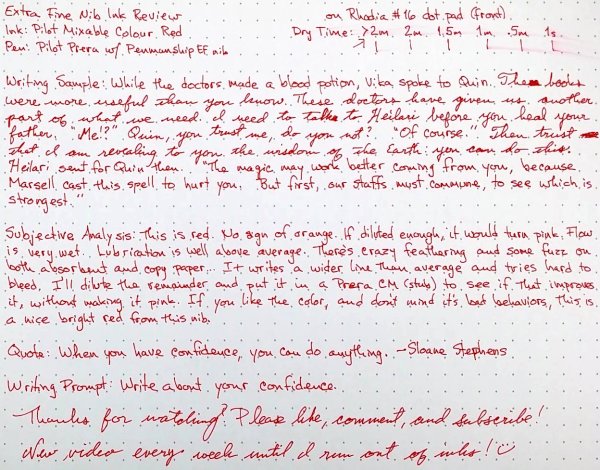 Extra Fine Nib Ink Review on Rhodia #16 dot pad (front)
Ink: Pilot Mixable Colour Red Dry Time: >2m 2m 1.5m 1m .5m 1s
Pen: Pilot Prera w/ Penmanship EF nib
Writing Sample: While the doctors made a blood potion, Vika spoke to Quin. These books
were more useful than you know. These doctors have given us another
part of what we need. I need to talk to Heilari before you heal your
father. "Me!?" Quin, you trust me, do you not? "Of course." Then trust
that I am revealing to you the wisdom of the Earth: you can do this.
Heilari sent for Quin then. "The magic may work better coming from you, because
Marsell cast this spell to hurt you. But first, our staffs must commune, to see which is
strongest."
Subjective Analysis: This is red. No sign of orange. If diluted enough, it would turn pink. Flow
is very wet. Lubrication is well above average. There's crazy feathering and some fuzz on
both absorbent and copy paper. It writes a wider line than average and tries hard to
bleed. I'll dilute the remainder and put it in a Prera CM (stub) to see if that improves
it, without making it pink. If you like the color, and don't mind it's bad behaviors, this is
a nice bright red from this nib.
Quote: When you have confidence, you can do anything. -Sloane Stephens
Writing Prompt: Write about your confidence.
Thanks for watching! Please like, comment, and subscribe!
New video every week until I run out of inks!